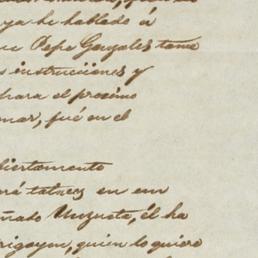 ya he hablado á
ue Pepe Gonzales tome
s instrucciones y
hara el proximo
mar, fué en el
biertamente
rá talvez en em
ñado Unzueta, él ha
rigoyen, quien lo quiere